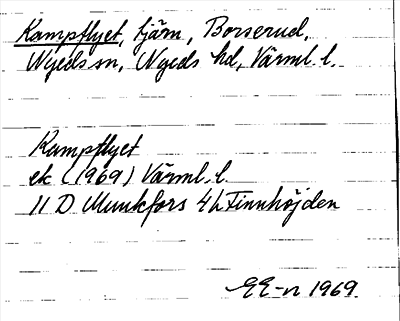 Kampflyet, tjärn, Borserud,
Nyeds sn, Nyeds hd, Värml. l.
Kampflyet
ek (1969) Värml. l.
11 D Munkfors 4 h Finnhöjden
EE-n 1969.